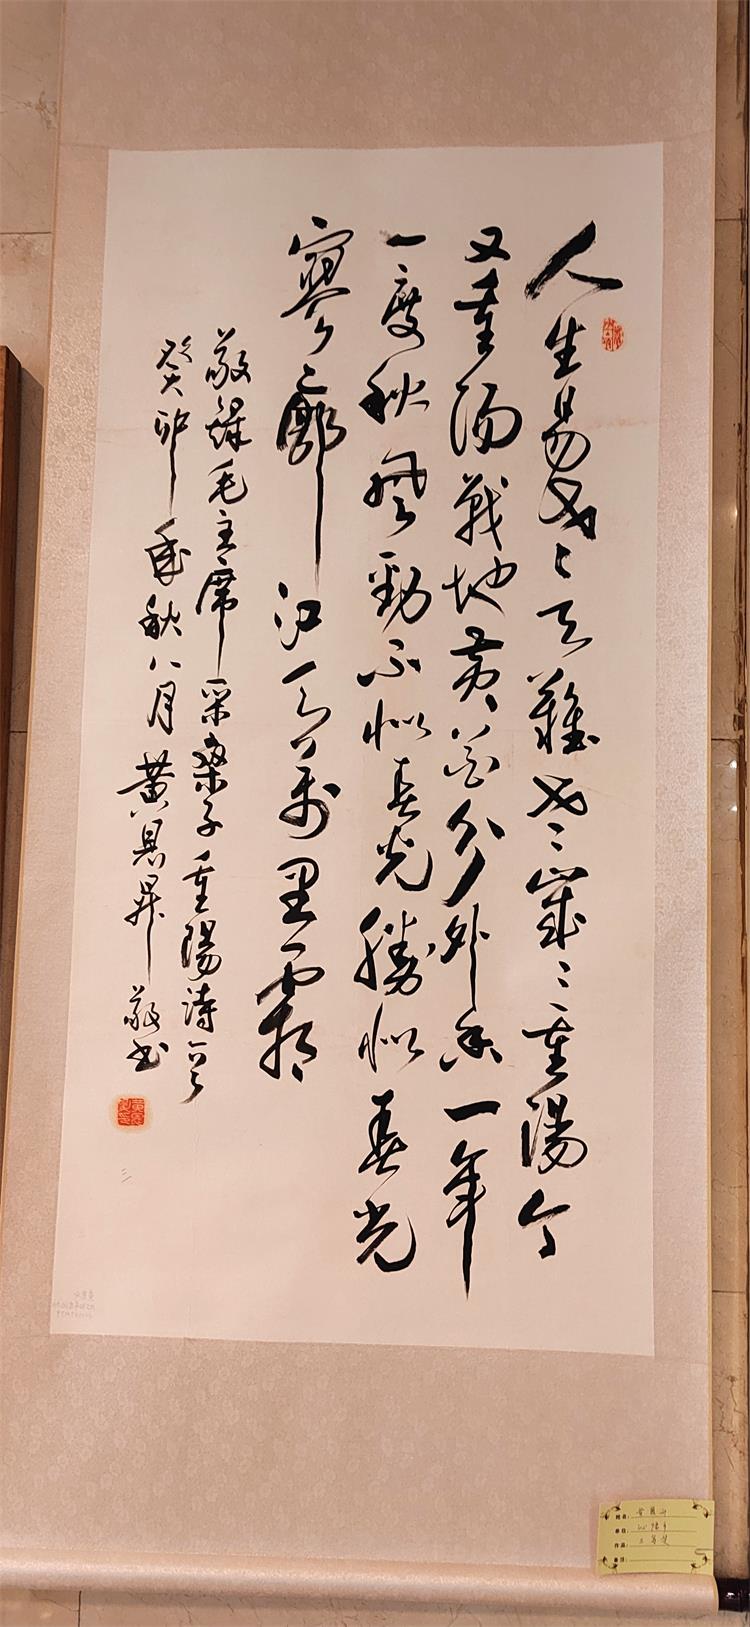 人生易老々天難老々歲々重陽今
又重陽戰地黃花分外香一年
一度秋風勁不似春光勝似春光
寥廓江天萬里霜
敬錄毛主席采桑子重陽詩一首
癸卯年秋八月黃昇敬書
姓名：
单位：
作品：
备注：